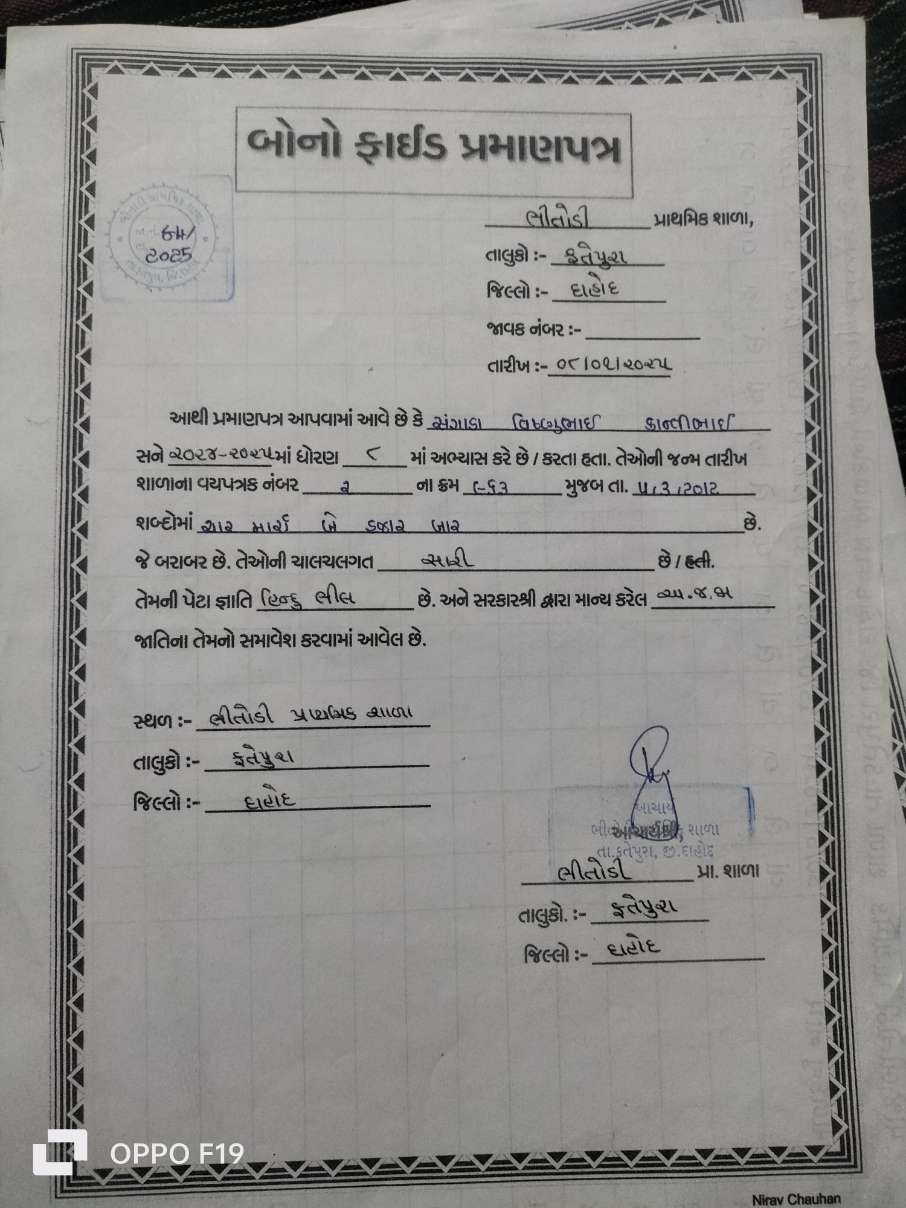 બોનો ફાઈડ પ્રમાણપત્ર
ભીતોડી પ્રાથમિક શાળા,
તાલુકો :- ફતેપુરા
જિલ્લો :- દાહોદ
જાવક નંબર :-
તારીખ :- ૦૮/૦૧/૨૦૨૫
2025
આથી પ્રમાણપત્ર આપવામાં આવે છે કે સંગાડા વિષ્ણુભાઈ કાન્તીભાઈ
સને ૨૦૨૪-૨૦૨૫માં ધોરણ ૮ માં અભ્યાસ કરે છે / કરતા હતા. તેઓની જન્મ તારીખ
શાળાના વયપત્રક નંબર ૨ ના ક્રમ ૯૬૩ મુજબ તા. ૫/૩/2012
શબ્દોમાં માર્ચ બે હજાર બાર છે.
જે બરાબર છે. તેઓની ચાલચલગત સારી છે / હતી.
તેમની પેટા જ્ઞાતિ હિન્દુ ભીલ છે. અને સરકારશ્રી દ્વારા માન્ય કરેલ અ.જ.જા
જાતિના તેમનો સમાવેશ કરવામાં આવેલ છે.
સ્થળ :- ભીતોડી પ્રાથમિક શાળા
તાલુકો :- ફતેપુરા
જિલ્લો :- દાહોદ
આચાર્ય
આચાર્યશ્રી,
શાળા
તા.ફતેપુરા, જી.દાહોદ
ભીતોડી પ્રા. શાળા
તાલુકો. :- ફતેપુરા
જિલ્લો :- દાહોદ
OPPO F19
Nirav Chauhan